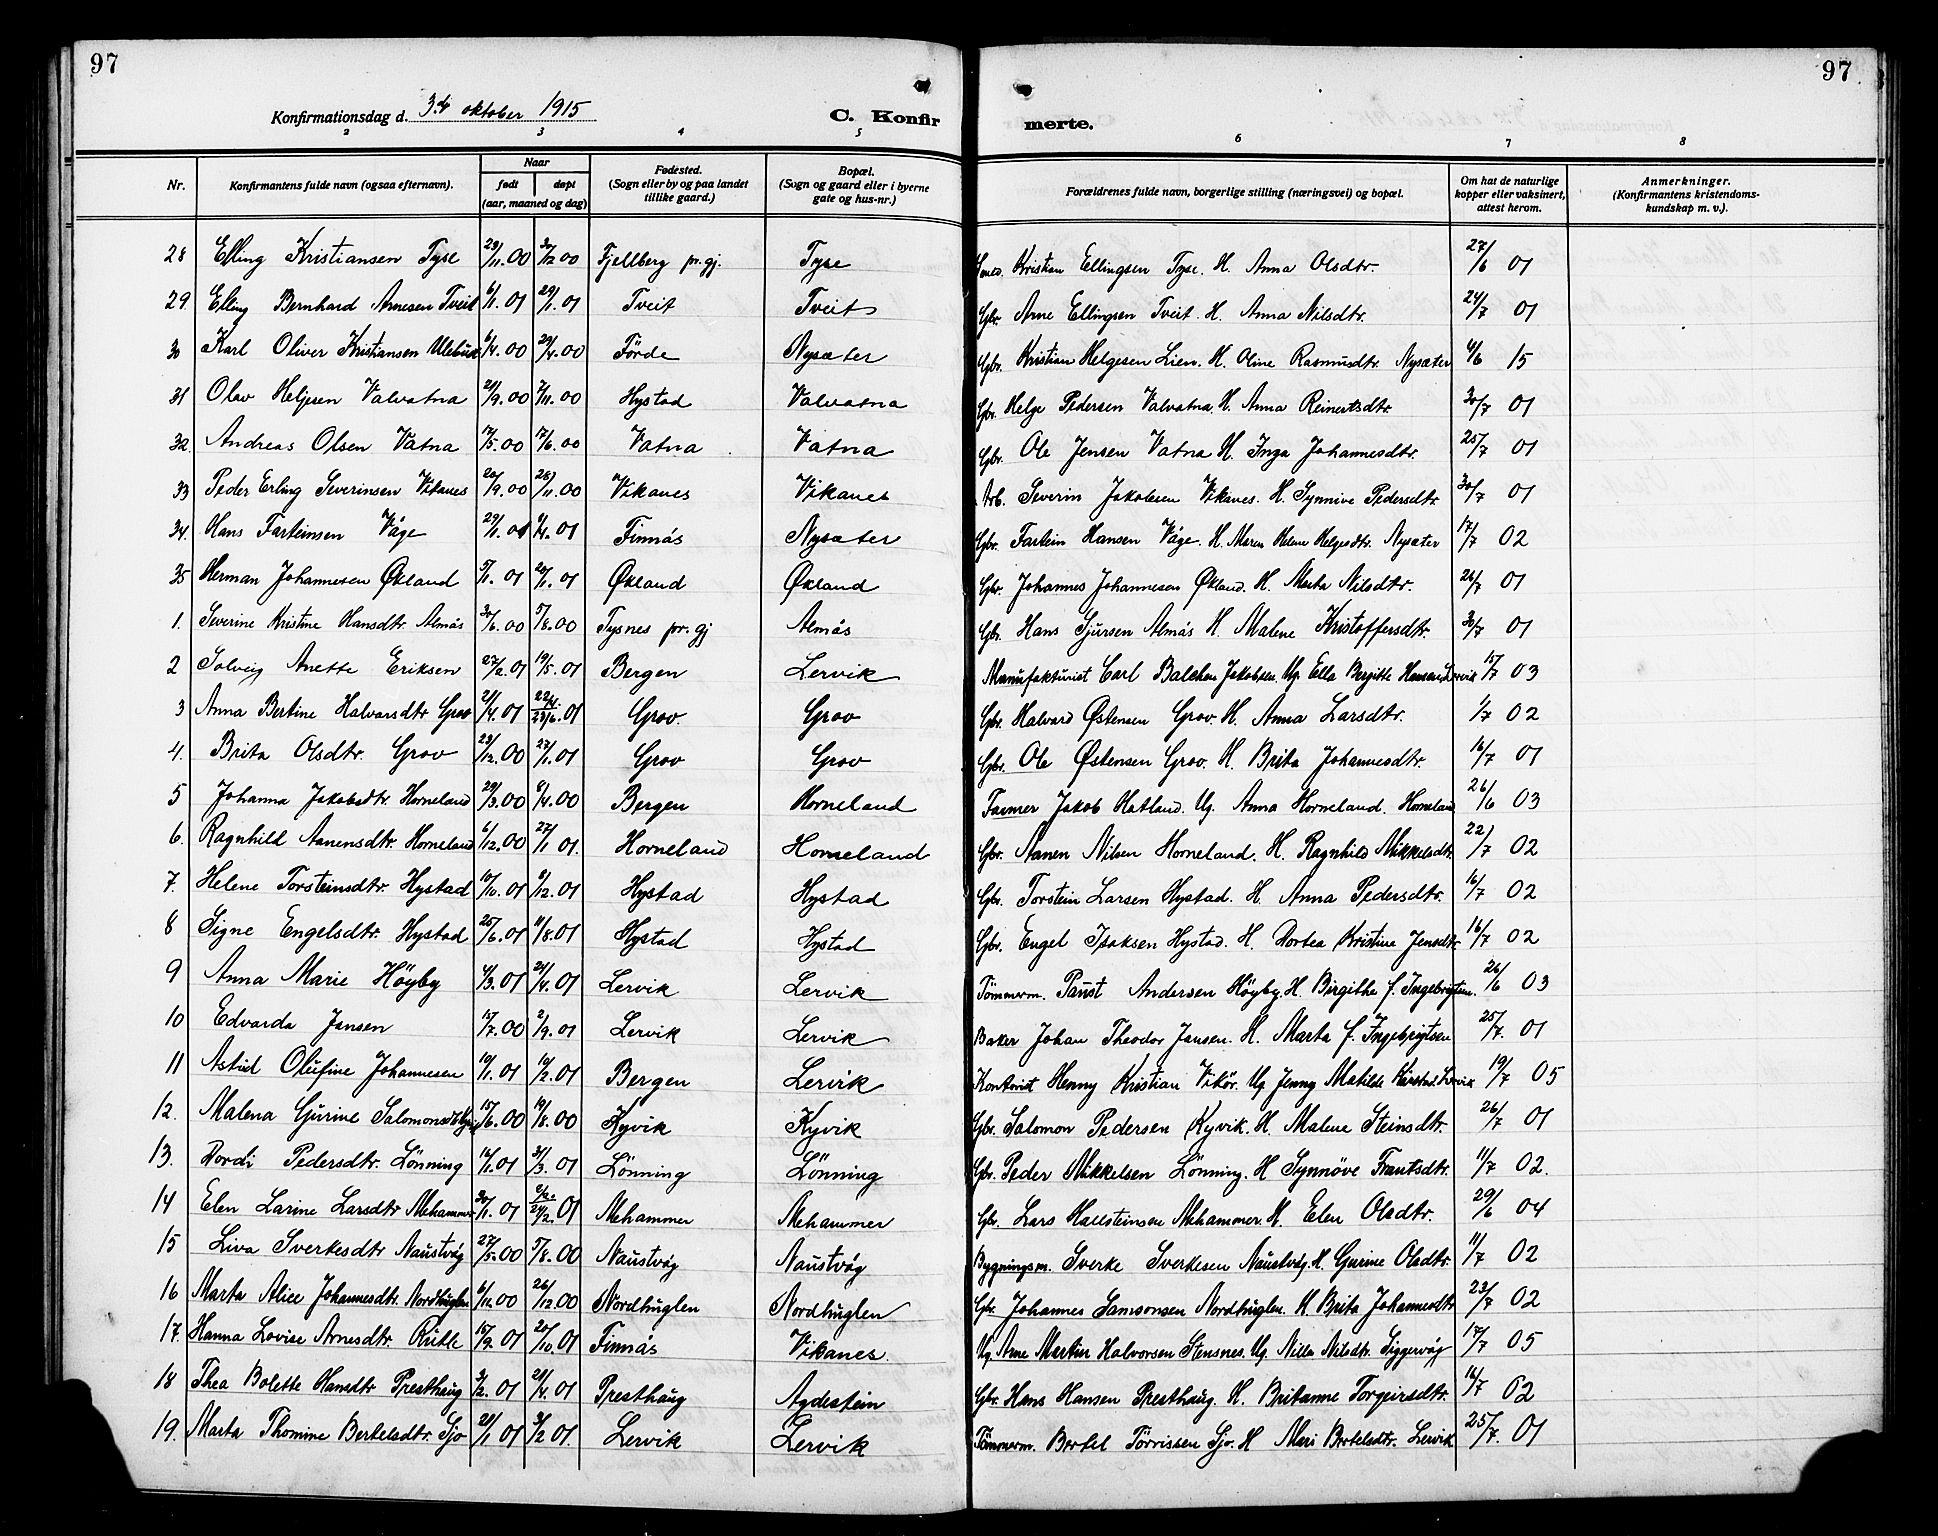 97 97
Konfirmationsdag d. 3de oktober 1915 C. Konfirmerte.
2 3 4 5 6 7 8
Nr. Konfirmantens fulde navn (ogsaa efternavn). Naar født døpt (aar, maaned og dag) Fødested. (Sogn eller by og paa landet tillike gaard.) Bopæl. (Sogn og gaard eller i byerne gate og hus-nr.) Forældrenes fulde navn, borgerlige stilling (næringsvei) og bopæl. Om hat de naturlige kopper eller vaksinert, attest herom. Anmerkninger. (Konfirmantens kristendoms-kundskap m. v.).
28 Elling Kristiansen Tyse 29/11.00 30/12 00 Fjellberg pr.gj. Tyse Kristian Ellingsen Tyse. H. Anna Olsdtr. 27/6 01
29. Elling Bernhard Arnesen Tveit 6/1.01 29/1.01 Tveit Tveit Gbr. Arne Ellingsen Tveit. H. Anna Nilsdtr. 24/7 01
30 Karl Oliver Kristiansen 6/4.00 29/4.00 Förde Nysæter Gbr. Kristian Helgesen Lien. H. Oline Rasmusdtr. Nysæter 4/6 15
31 Olav Heljesen Valvatna 21/9.00 7/11.00 Hystad Valvatna Gbr. Helge Pedersen Valvatna. H. Anna Reinertsdtr. 30/7 01
32. Andreas Olsen Vatna 12/5.00 17/6.00 Vatna Vatna Gbr. Ole Jensen Vatna H. Inga Johannesdtr. 25/7 01
33 Peder Erling Severinsen Vikanes 20/9.00 28/11.00 Vikanes Vikanes Arb. Severin Jakobsen Vikanes. H. Synnive Pedersdtr. 30/7 01
34. Hans Farteinsen Våge 29/1.01 8/4.01 Finnås Nysæter Gbr. Fartein Hansen Våge. H. Maren Helene Helgesdtr. Nysæter 17/7 02
35 Herman Johannesen Økland 5/1.01 20/1.01 Økland Økland Gbr. Johannes Johannesen Økland. H. Marta Nilsdtr. 26/7 01
1. Severine Kristine Hansdtr. Almås 30/6.00 5/8.00 Tysnes pr.gj Almås Gbr. Hans Sjursen Almås H. Malene Kristoffersdtr. 30/7 01
2 Solveig Anette Eriksen 27/2.01 19/5.01 Bergen Lervik Manufakturist Carl Balchen Jakobsen Ug. Ella Birgitte Hansen Lervik 15/7 03
3 Anna Bertine Halvarsdtr Grov 21/4.01 22/4. 23/6.01 Grov Grov Gbr. Halvard Østensen Grov. H. Anna Larsdtr. 1/7 02
4. Brita Olsdtr. Grov 23/12.00 27/1.01 Grov Grov Gbr. Ole Østensen Grov. H. Brita Johannesdtr. 16/7 01
5 Johanna Jakobsdtr. Horneland 29/3.00 8/4.00 Bergen Horneland Farmer Jakob Hatland. Ug. Anna Horneland. Horneland 26/6 03
6. Ragnhild Aanensdtr. Horneland 6/12.00 27/1 01. Horneland Horneland Gbr. Aanen Nilsen Horneland. H. Ragnhild Mikkelsdtr. 22/7 02
7. Helene Torsteinsdtr. Hystad 10/10.01 8/12.01 Hystad Hystad Gbr. Torstein Larsen Hystad. H. Anna Pedersdtr. 16/7 02
8 Signe Engelsdtr. Hystad 25/6.01 11/8.01 Hystad Hystad Gbr. Engel Isaksen Hystad. H. Dortea Kristine Jensdtr 16/7 02
9 Anna Marie Höyby 4/3.01 24/4.01 Lervik Lervik Tömmerm. Paust Andersen Höyby. H. Birgithe f. Ingebrigtsen. 26/6 03
10 Edvarda Jansen 17/7.00 2/9.01 Lervik Lervik Baker Johan Theodor Jansen. H. Marta f. Ingebrigtsen 25/7. 01
11 Astrid Olufine Johannesen 10/1.01 10/2.01 Bergen Lervik Kontorist Henny Kristian Vikör. Ug. Jenny Matilde Lervik 19/7 05
12. Malena Gurine Salomonsd Kyvik 15/6.00 19/8.00 Kyvik Kyvik Gbr. Salomon Pedersen Kyvik. H. Malene Steinsdtr. 26/7 01
13. Dordi Pedersdtr. Lönning 12/1.01 31/3.01 Lönning Lönning Gbr. Peder Mikkelsen Lönning. H Synnöve Frantsdtr. 11/7 02.
14 Elen Larine Larsdtr Mehammer 30/1.01 24/2.01 Mehammer Mehammer Gbr. Lars Hallsteinsen Mehammer H. Elen Olsdtr. 29/6 04
15 Liva Sverkesdtr Naustvåg 27/5.00 5/8.00 Naustvåg Naustvåg Bygningsm. Sverke Sverkesen Naustvåg. H Gurine Olsdtr. 11/7 02
16 Marta Alice Johannesdtr. Nordhuglen 6/12.00 26/12.00 Nordhuglen Nordhuglen Gbr. Johannes Samsonsen Nordhuglen. H. Brita Johannesdtr 23/7 02
17. Hanna Lovise Arnesdtr. 15/9.01 20/10.01 Finnås Vikanes. Ug. Arne Martin Halvorsen Stensnes. Ug. Nilla Nilsdtr. Siggervåg 17/7 05
18 Thea Bolette Hansdtr Presthaug 3/2.01 21/4.01 Presthaug Agdestein Gbr. Hans Hansen Presthaug. H. Britanne Torgeirsdtr. 16/7 02
19. Marta Thomine Bertelsdtr. Sjo 20/1 01 3/2 01. Lervik Lervik Tömmerm. Bertel Törrissen Sjo. H Mari Bertelsdtr. Lervik 25/7. 01